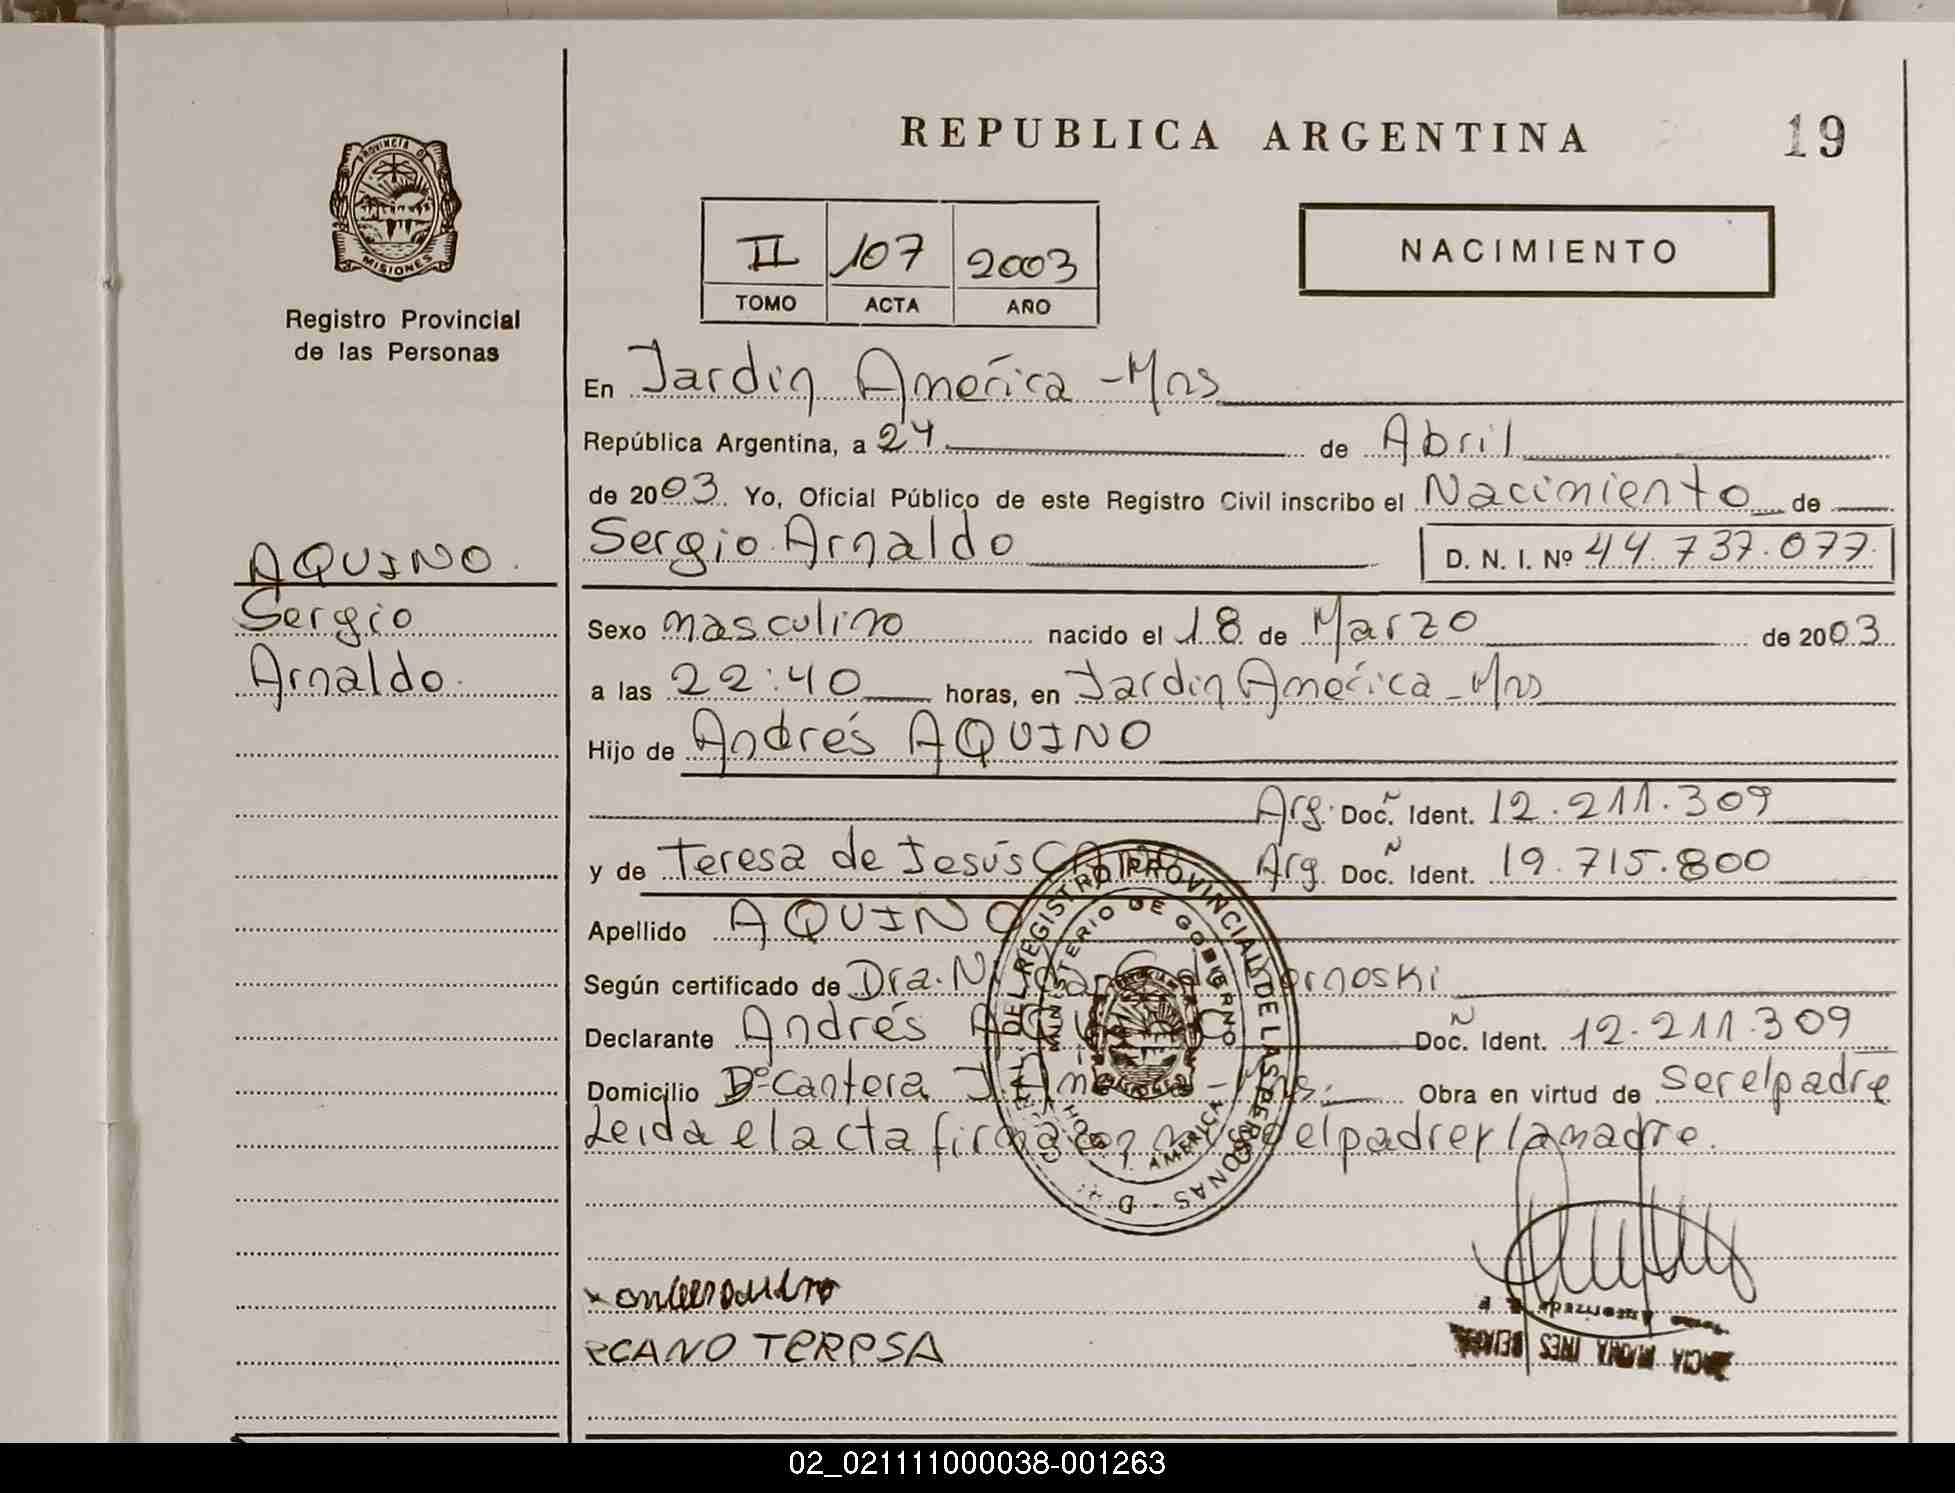 REPUBLICA ARGENTINA
19
PROVINCIA D
MISIONES
Registro Provincial
de las Personas
II 107 2003
TOMO ACTA AÑO
NACIMIENTO
En Jardin América - Mns
República Argentina, a 24 de Abril
de 2003 Yo, Oficial Público de este Registro Civil inscribo el Nacimiento de
Sergio Arnaldo D. N. I. Nº 44.737.077.
AQUINO.
Sergio
Arnaldo.
Sexo masculino nacido el 18 de Marzo de 2003
a las 22:40 horas, en Jardin América - Mns
Hijo de Andrés AQUINO
Arg. Doc. Ident. 12.211.309
y de Teresa de Jesús CANO Arg. Doc. Ident. 19.715.800
Apellido AQUINO
Según certificado de Dra.
Declarante Andrés AQUINO Doc. Ident. 12.211.309
Domicilio Bº Cantera J. América - Mns. Obra en virtud de ser el padre
Leida el acta firman conmigo el padre y la madre.
DEL REGISTRO PROVINCIAL DE LAS PERSONAS
MINISTERIO DE GOBIERNO
AMERICA
CANO TERESA
MARIA INES
02_021111000038-001263